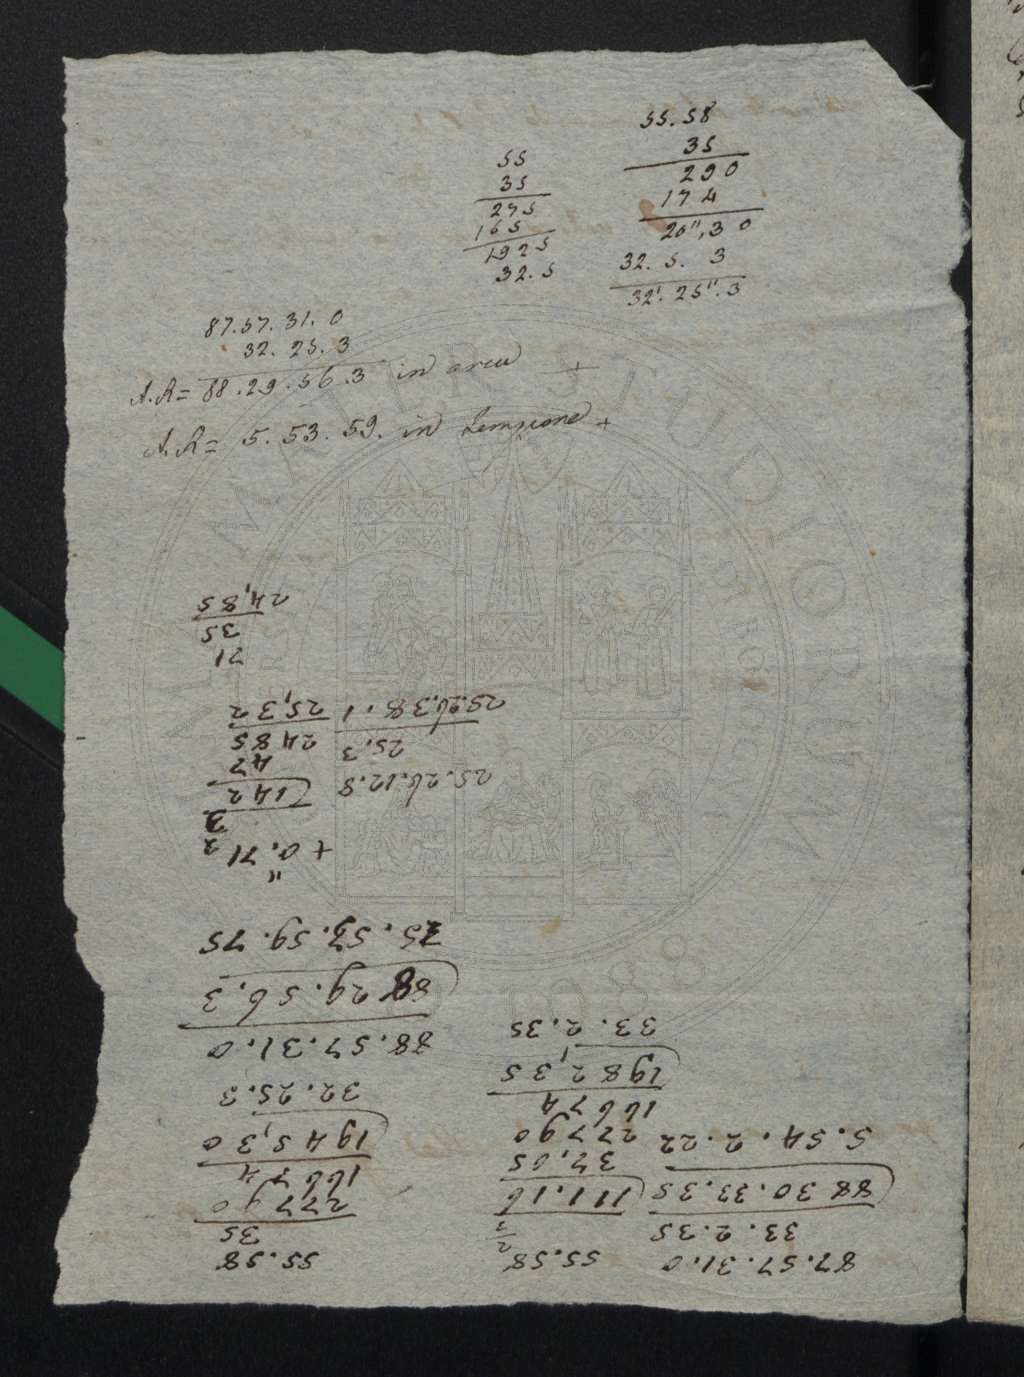 55.58
35
290
174
20",30
32. 5. 3
32'. 25". 3
55
35
275
165
1925
32.5
87.57.31.0
32. 25. 3
A.R= 88.29.56.3 in arcu +
A.R= 5. 53. 59. in tempore +
55.58
35
27790
16674
1945,30
32. 25.3
88.57.31.0
88 29.56.3
53.59.75
55.58
2
3
111.16
37,05
27790
16674
1982,35
33. 2.35
87.57.31.0
33. 2.35
88 30.33.35
5.54. 2.22
+ 0",71
2
3
142
47
2485
25,32
25.26.12.8
25.3
25.26.38.1
71
35
24,85
ALMA MATER STUDIORUM
A.D. 1088